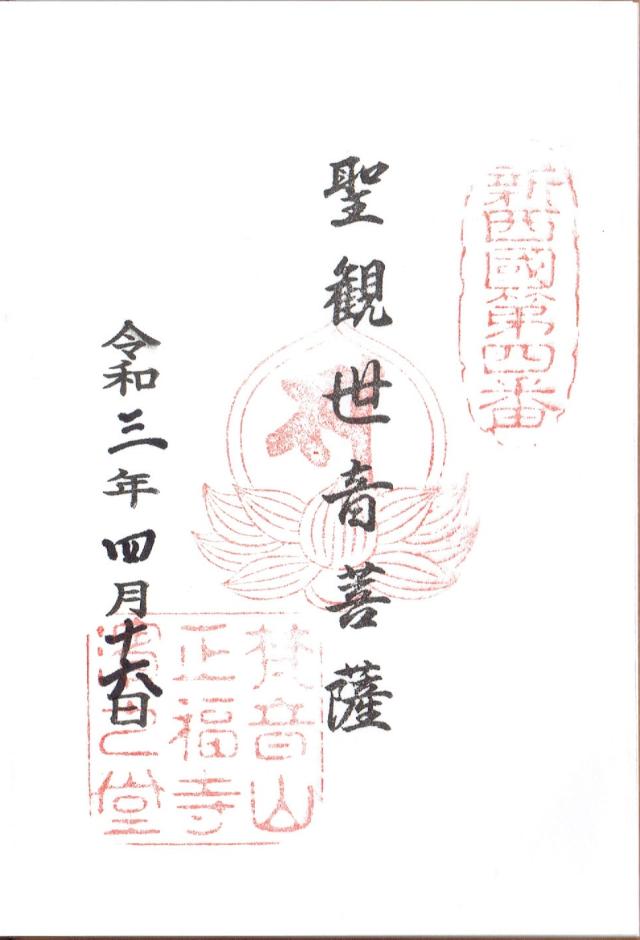 新西國第四番
聖観世音菩薩
梵音山
正福寺
堂
令和三年四月十六日